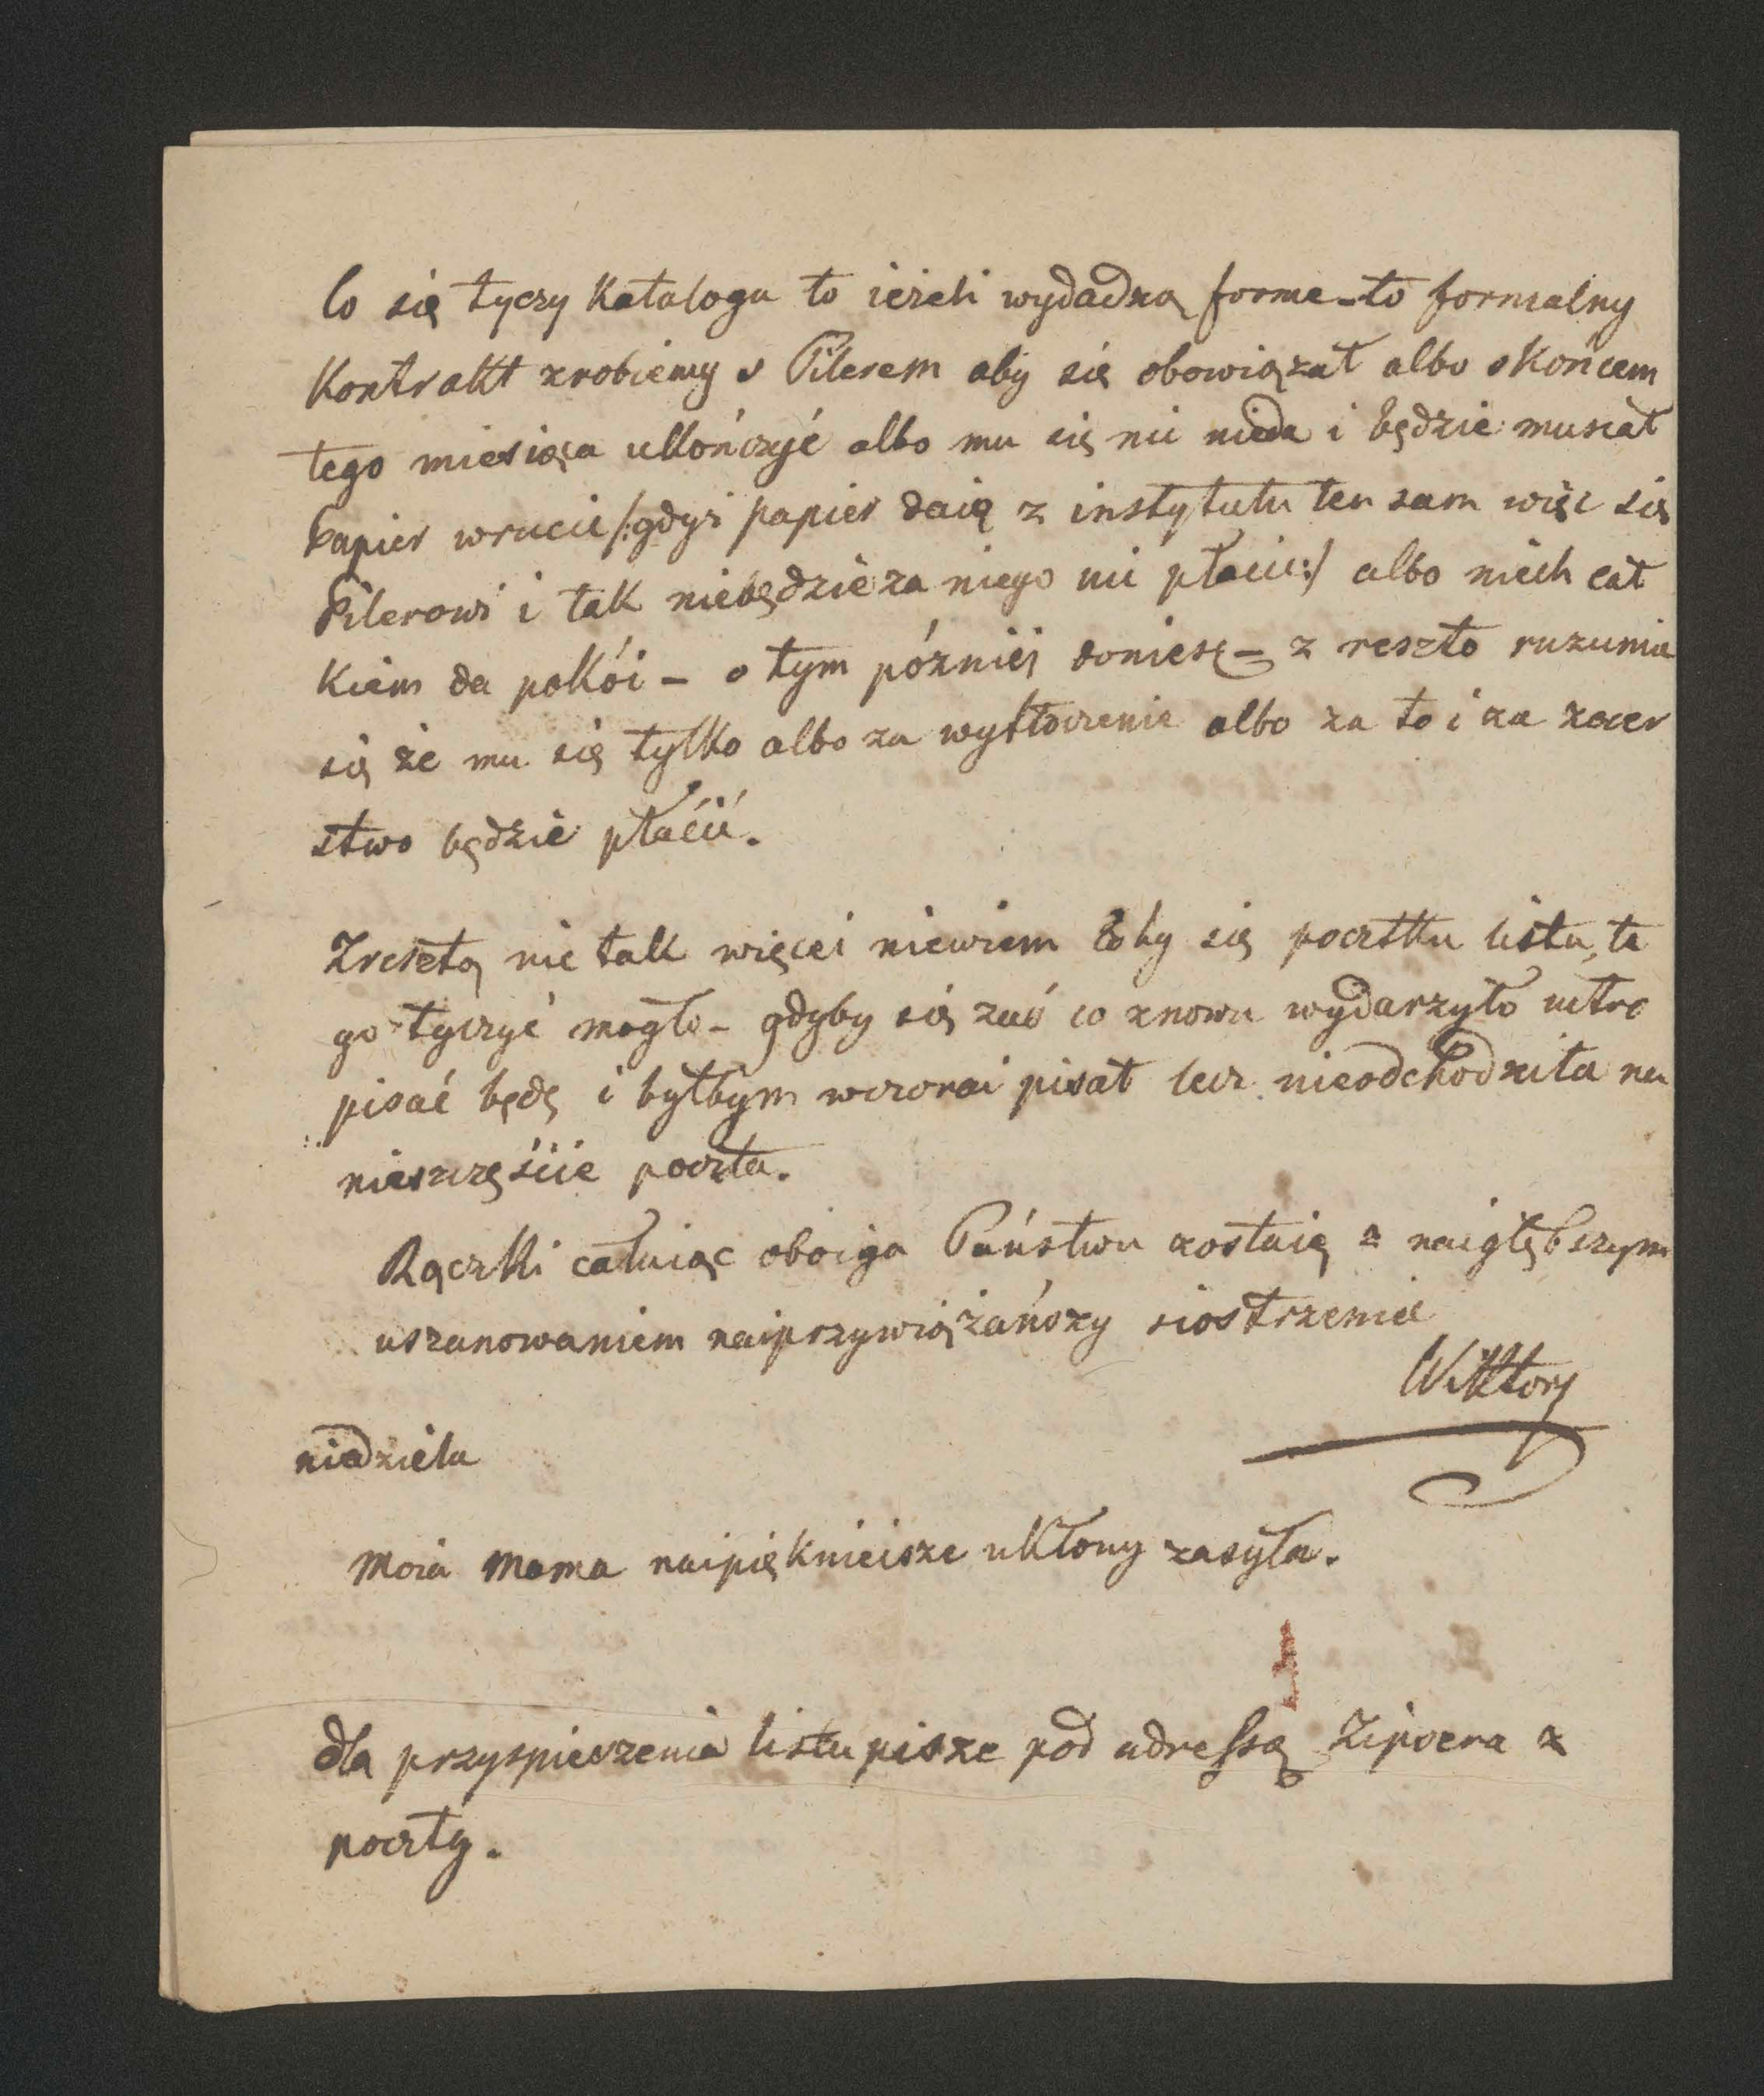 Co się tyczy Katalogu to ieżeli wydadzą forme – to formalny
Kontrakt zrobiemy s Pilerem aby się obowiązał albo s Końcem
tego miesiąca ukończyć albo mu się nic nieda i będzie musiał
papier wrucić /:gdyż papier daią z instytutu ten sam więc się
Pilerowi i tak niebędzie za niego nic płacić:/ albo niech cał
Kiem da pokói – o tym późniéj doniesę – z reszto rozumie
się że mu się tylko albo za wytłoczenie albo za to i za zecer
stwo będzie płacić.
Zresztą nic tak więcei niewiem coby się początku listu te
go tyczyć mogło – gdyby się zaś co znowu wydarzyło iutro
pisać będę i byłbym wczorai pisał lecz nieodchodziła na
nieszczęście poczta.
Rączki całuiąc oboiga Państwu zostaię z naigłębszym
uszanowaniem naiprzywiązańszy siostrzeniec
Wiktory
niedziela
Moia Mama naipięknieisze ukłony zasyła.
dla przyspieszenia listu pisze pod adressą Zipsera z
poczty.